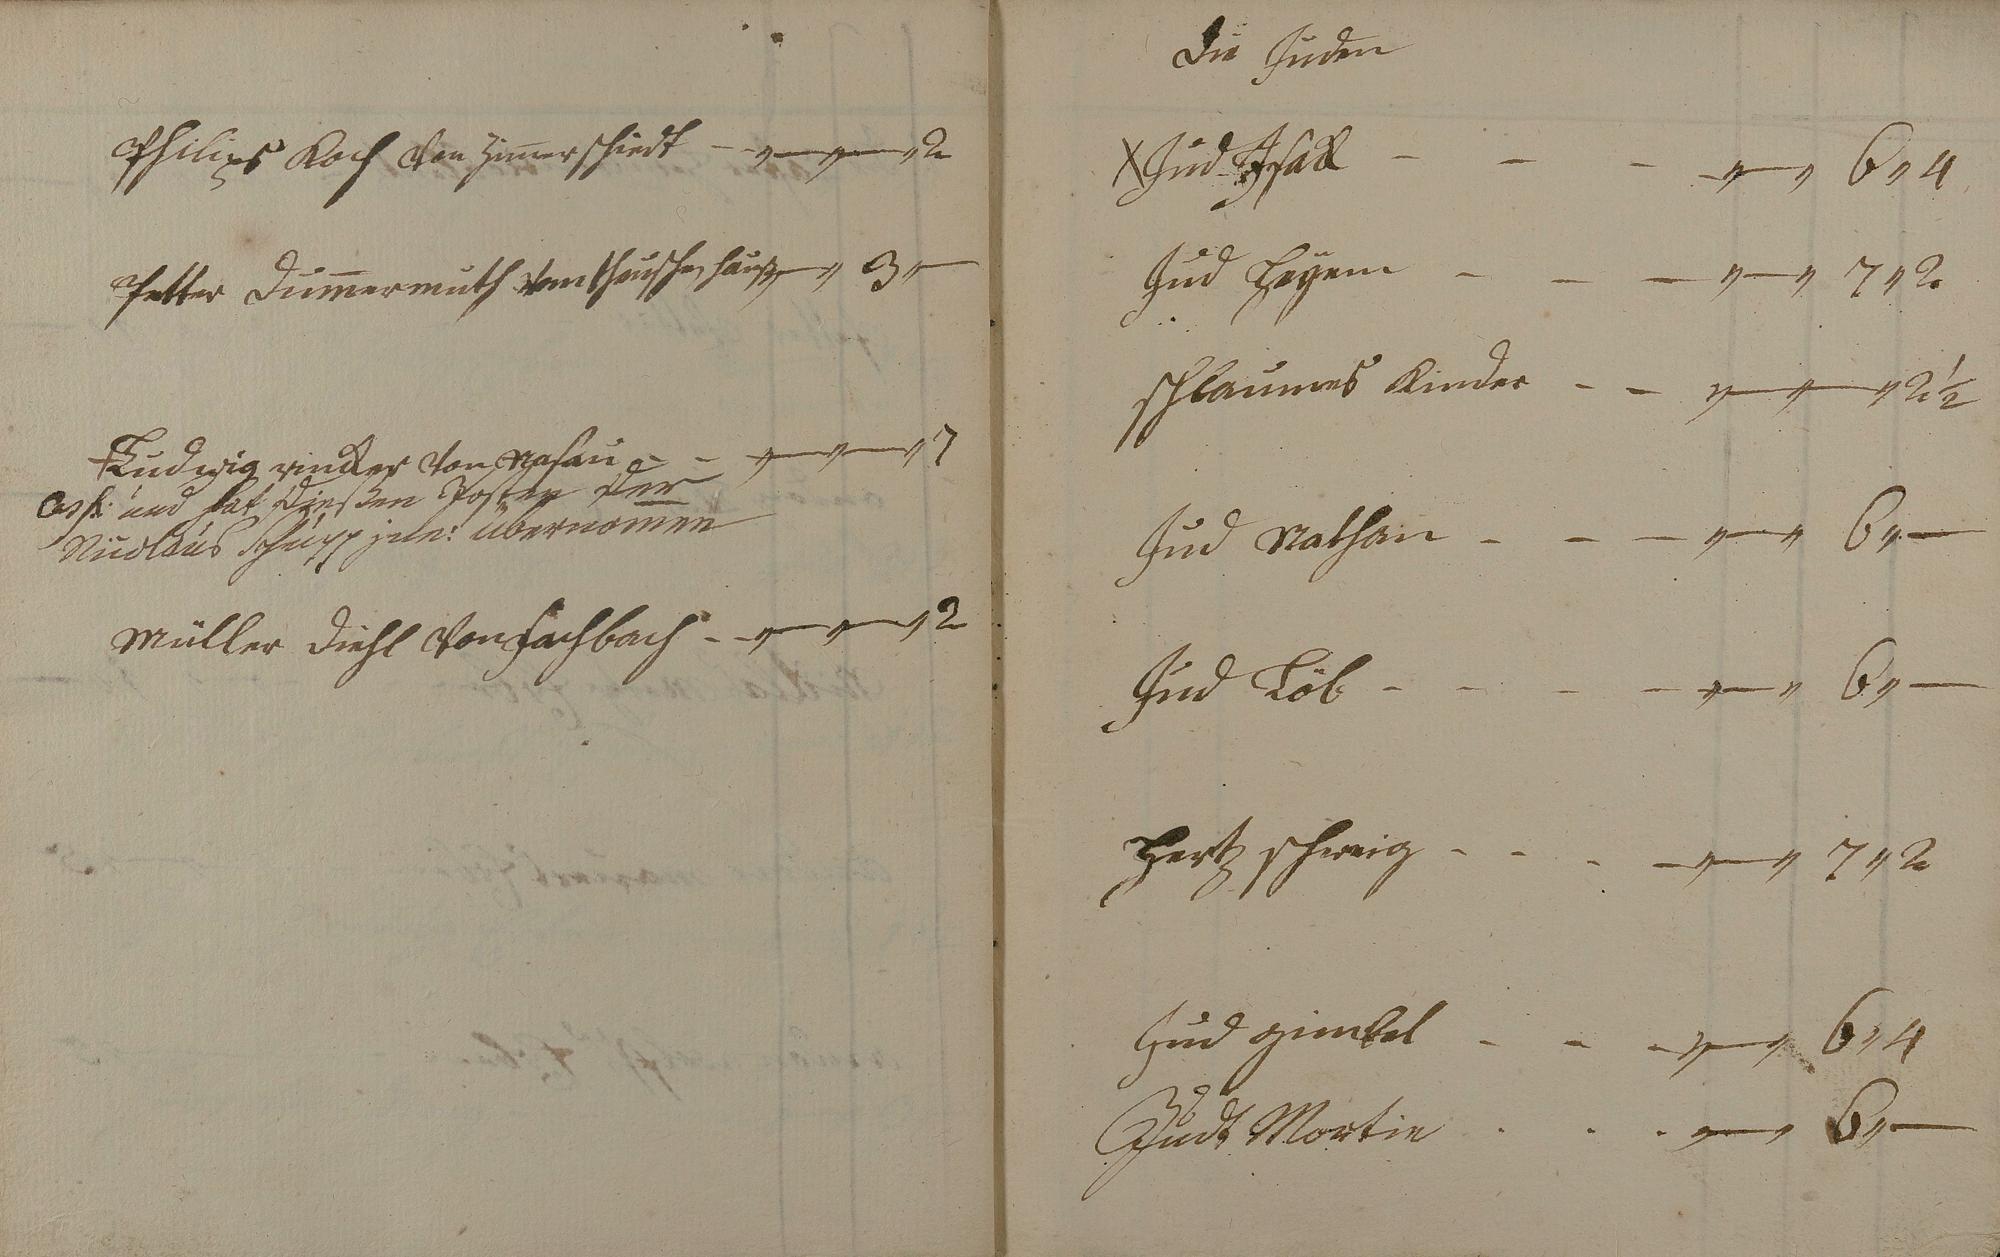 Philips Koch Von Zimerschiedt - - " — " — " 2
Petter Dumermuth Vom Hauß — " 3 " —
+ Ludwig rincker Von Nasau - - " — " — " 7
und hat dießen Posten der
Nicolaus Schupp jun: übernomen
Müller Diehl Von fachbach - - " — " — " 2
Die Juden
X Jud Isaak - - - - " — " 6 " 4
Jud Heyem - - - " — " 7 " 2
schlaumes Kinder - - " — " — " 2 1/2
Jud Nathan - - - " — " 6 " —
Jud Löb - - - - " — " 6 " —
Hertz schweig - - - - " — " 7 " 2
Jud gimbel - - - " — " 6 " 4
Judt Mortie . . . " — " 6 " —